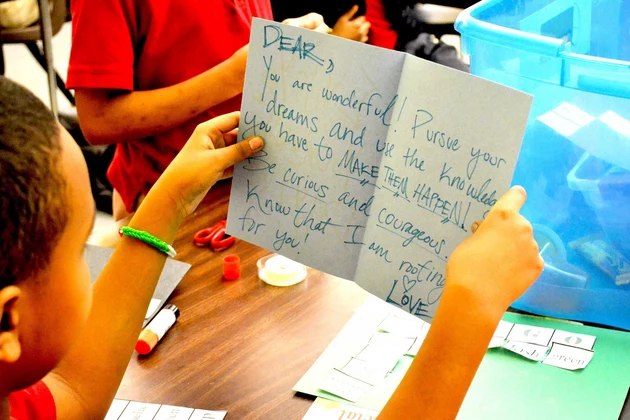 DEAR,
You are wonderful! Pursue your
dreams and use the knowledge
you have to MAKE THEM HAPPEN!
Be curious and courageous.
Know that I am rooting
for you!
LOVE
green